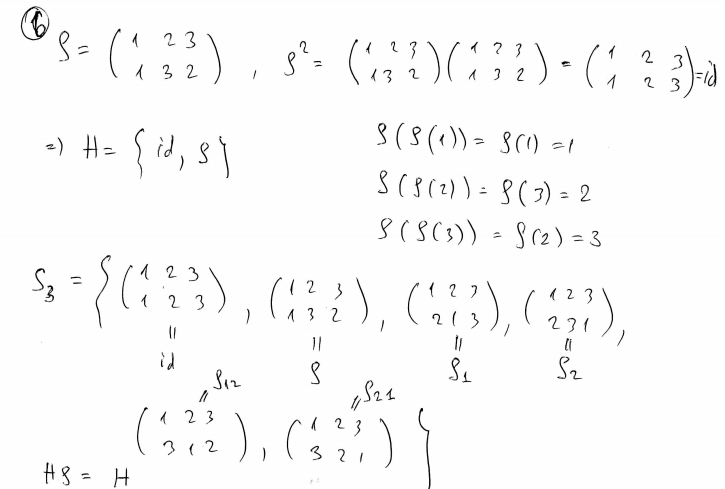 ⑥
ρ = ( 1 2 3 / 1 3 2 ) , ρ² = ( 1 2 3 / 1 3 2 ) ( 1 2 3 / 1 3 2 ) = ( 1 2 3 / 1 2 3 ) = id
=) H = { id, ρ }
ρ(ρ(1)) = ρ(1) = 1
ρ(ρ(2)) = ρ(3) = 2
ρ(ρ(3)) = ρ(2) = 3
S₃ = { ( 1 2 3 / 1 2 3 ) , ( 1 2 3 / 1 3 2 ) , ( 1 2 3 / 2 1 3 ) , ( 1 2 3 / 2 3 1 ) ,
= = = =
id ρ ρ₁ ρ₂
= ρ₁₂ = ρ₂₁
( 1 2 3 / 3 1 2 ) , ( 1 2 3 / 3 2 1 ) }
Hρ = H